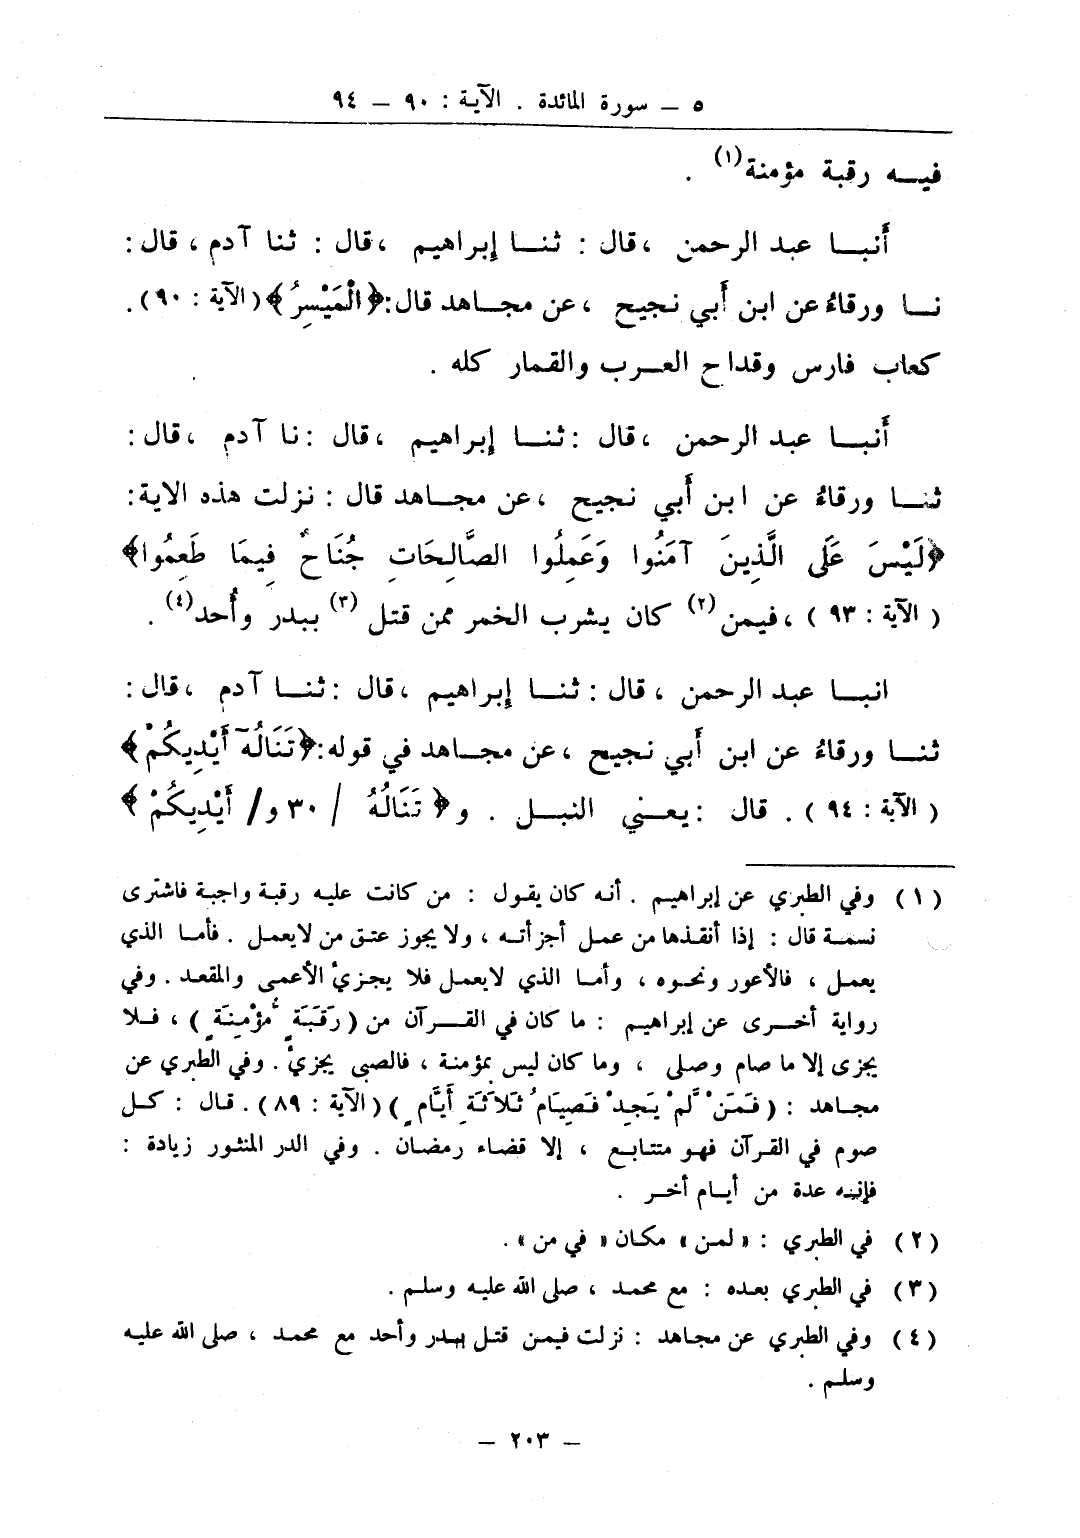 ٥ – سورة المائدة . الآية : ٩٠ – ٩٤
فيه رقبة مؤمنة(١) .
أنبا عبد الرحمن ، قال : ثنا إبراهيم ، قال : ثنا آدم ، قال :
نا ورقاءُ عن ابن أبي نجيح ، عن مجاهد قال : ﴿الْمَيْسِرُ﴾ (الآية : ٩٠) .
كعاب فارس وقداح العرب والقمار كله .
أنبا عبد الرحمن ، قال : ثنا إبراهيم ، قال : نا آدم ، قال :
ثنا ورقاءُ عن ابن أبي نجيح ، عن مجاهد قال : نزلت هذه الاية :
﴿لَيْسَ عَلَى الَّذِينَ آمَنُوا وَعَمِلُوا الصَّالِحَاتِ جُنَاحٌ فِيمَا طَعِمُوا﴾
( الآية : ٩٣ ) ، فيمن (٢) كان يشرب الخمر ممن قتل (٣) ببدر وأُحد(٤) .
انبا عبد الرحمن ، قال : ثنا إبراهيم ، قال : ثنا آدم ، قال :
ثنا ورقاءُ عن ابن أبي نجيح ، عن مجاهد في قوله : ﴿تَنَالُهٓ أَيْدِيكُمْ﴾
( الآية : ٩٤ ) . قال : يعني النبل . و﴿ تَنَالُهُ / ٣٠ و/ أَيْدِيكُمْ ﴾
(١) وفي الطبري عن إبراهيم . أنه كان يقول : من كانت عليه رقبة واجبة فاشترى
نسمة قال : إذا أنقذها من عمل أجزأته ، ولا يجوز عتق من لايعمل . فأما الذي
يعمل ، فالأعور ونحوه ، وأما الذي لايعمل فلا يجزيُ الأعمى والمقعد . وفي
رواية أخرى عن إبراهيم : ما كان في القرآن من ( رَقَبَةٍ مُؤْمِنَةٍ ) ، فلا
يجزى إلا ما صام وصلى ، وما كان ليس بمؤمنة ، فالصبى يجزيُ . وفي الطبري عن
مجاهد : ( فَمَنْ لَّمْ يَجِدْ فَصِيَامُ ثَلَاثَةِ أَيَّامٍ ) ( الآية : ٨٩ ) . قال : كل
صوم في القرآن فهو متتابع ، إلا قضاء رمضان . وفي الدر المنثور زيادة :
فإنه عدة من أيام أخر .
(٢) في الطبري : « لمن » مكان « في من » .
(٣) في الطبري بعده : مع محمد ، صلى الله عليه وسلم .
(٤) وفي الطبري عن مجاهد : نزلت فيمن قتل ببدر وأحد مع محمد ، صلى الله عليه
وسلم .
– ٢٠٣ –